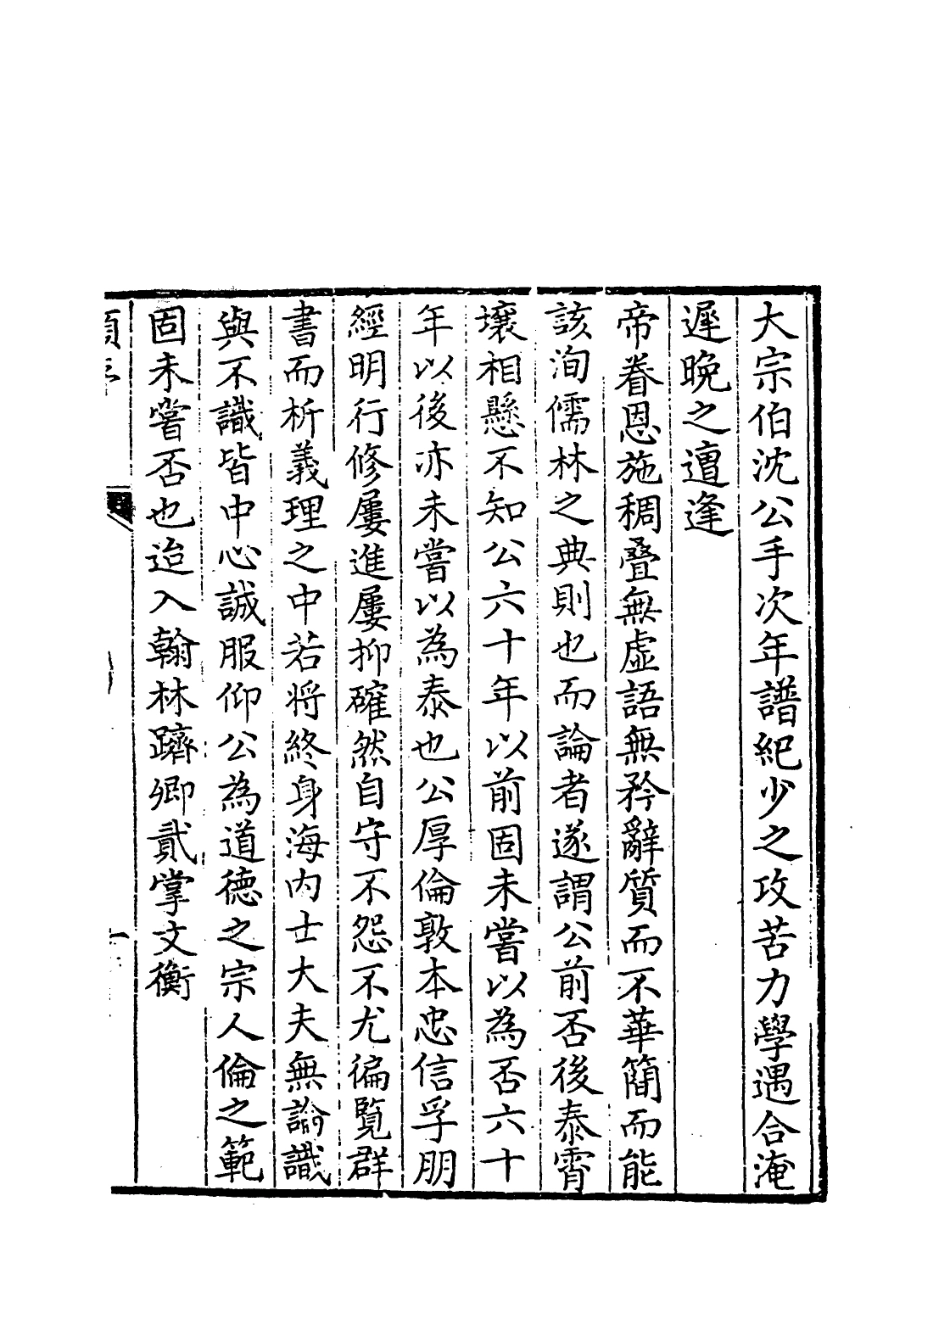 大宗伯沈公手次年譜紀少之攻苦力學遇合淹
遲晚之遭逢
帝眷恩施稠疊無虛語無矜辭質而不華簡而能
該洵儒林之典則也而論者遂謂公前否後泰霄
壤相懸不知公六十年以前固未嘗以為否六十
年以後亦未嘗以為泰也公厚倫敦本忠信孚朋
經明行修屢進屢抑確然自守不怨不尤徧覧群
書而析義理之中若將終身海内士大夫無論識
與不識皆中心誠服仰公為道德之宗人倫之範
固未嘗否也迨入翰林躋卿貳掌文衡